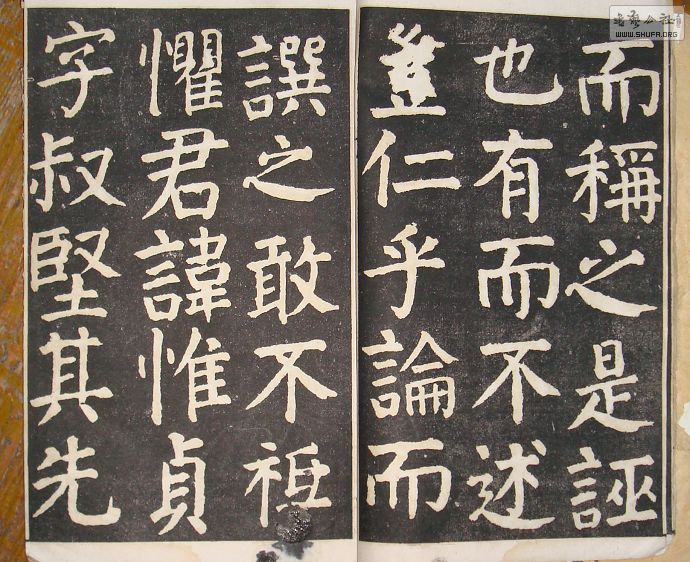 而稱之是誣
也有而不述
豈仁乎論而
譔之敢不祗
懼君諱惟貞
字叔堅其先
WWW.SHUFA.ORG